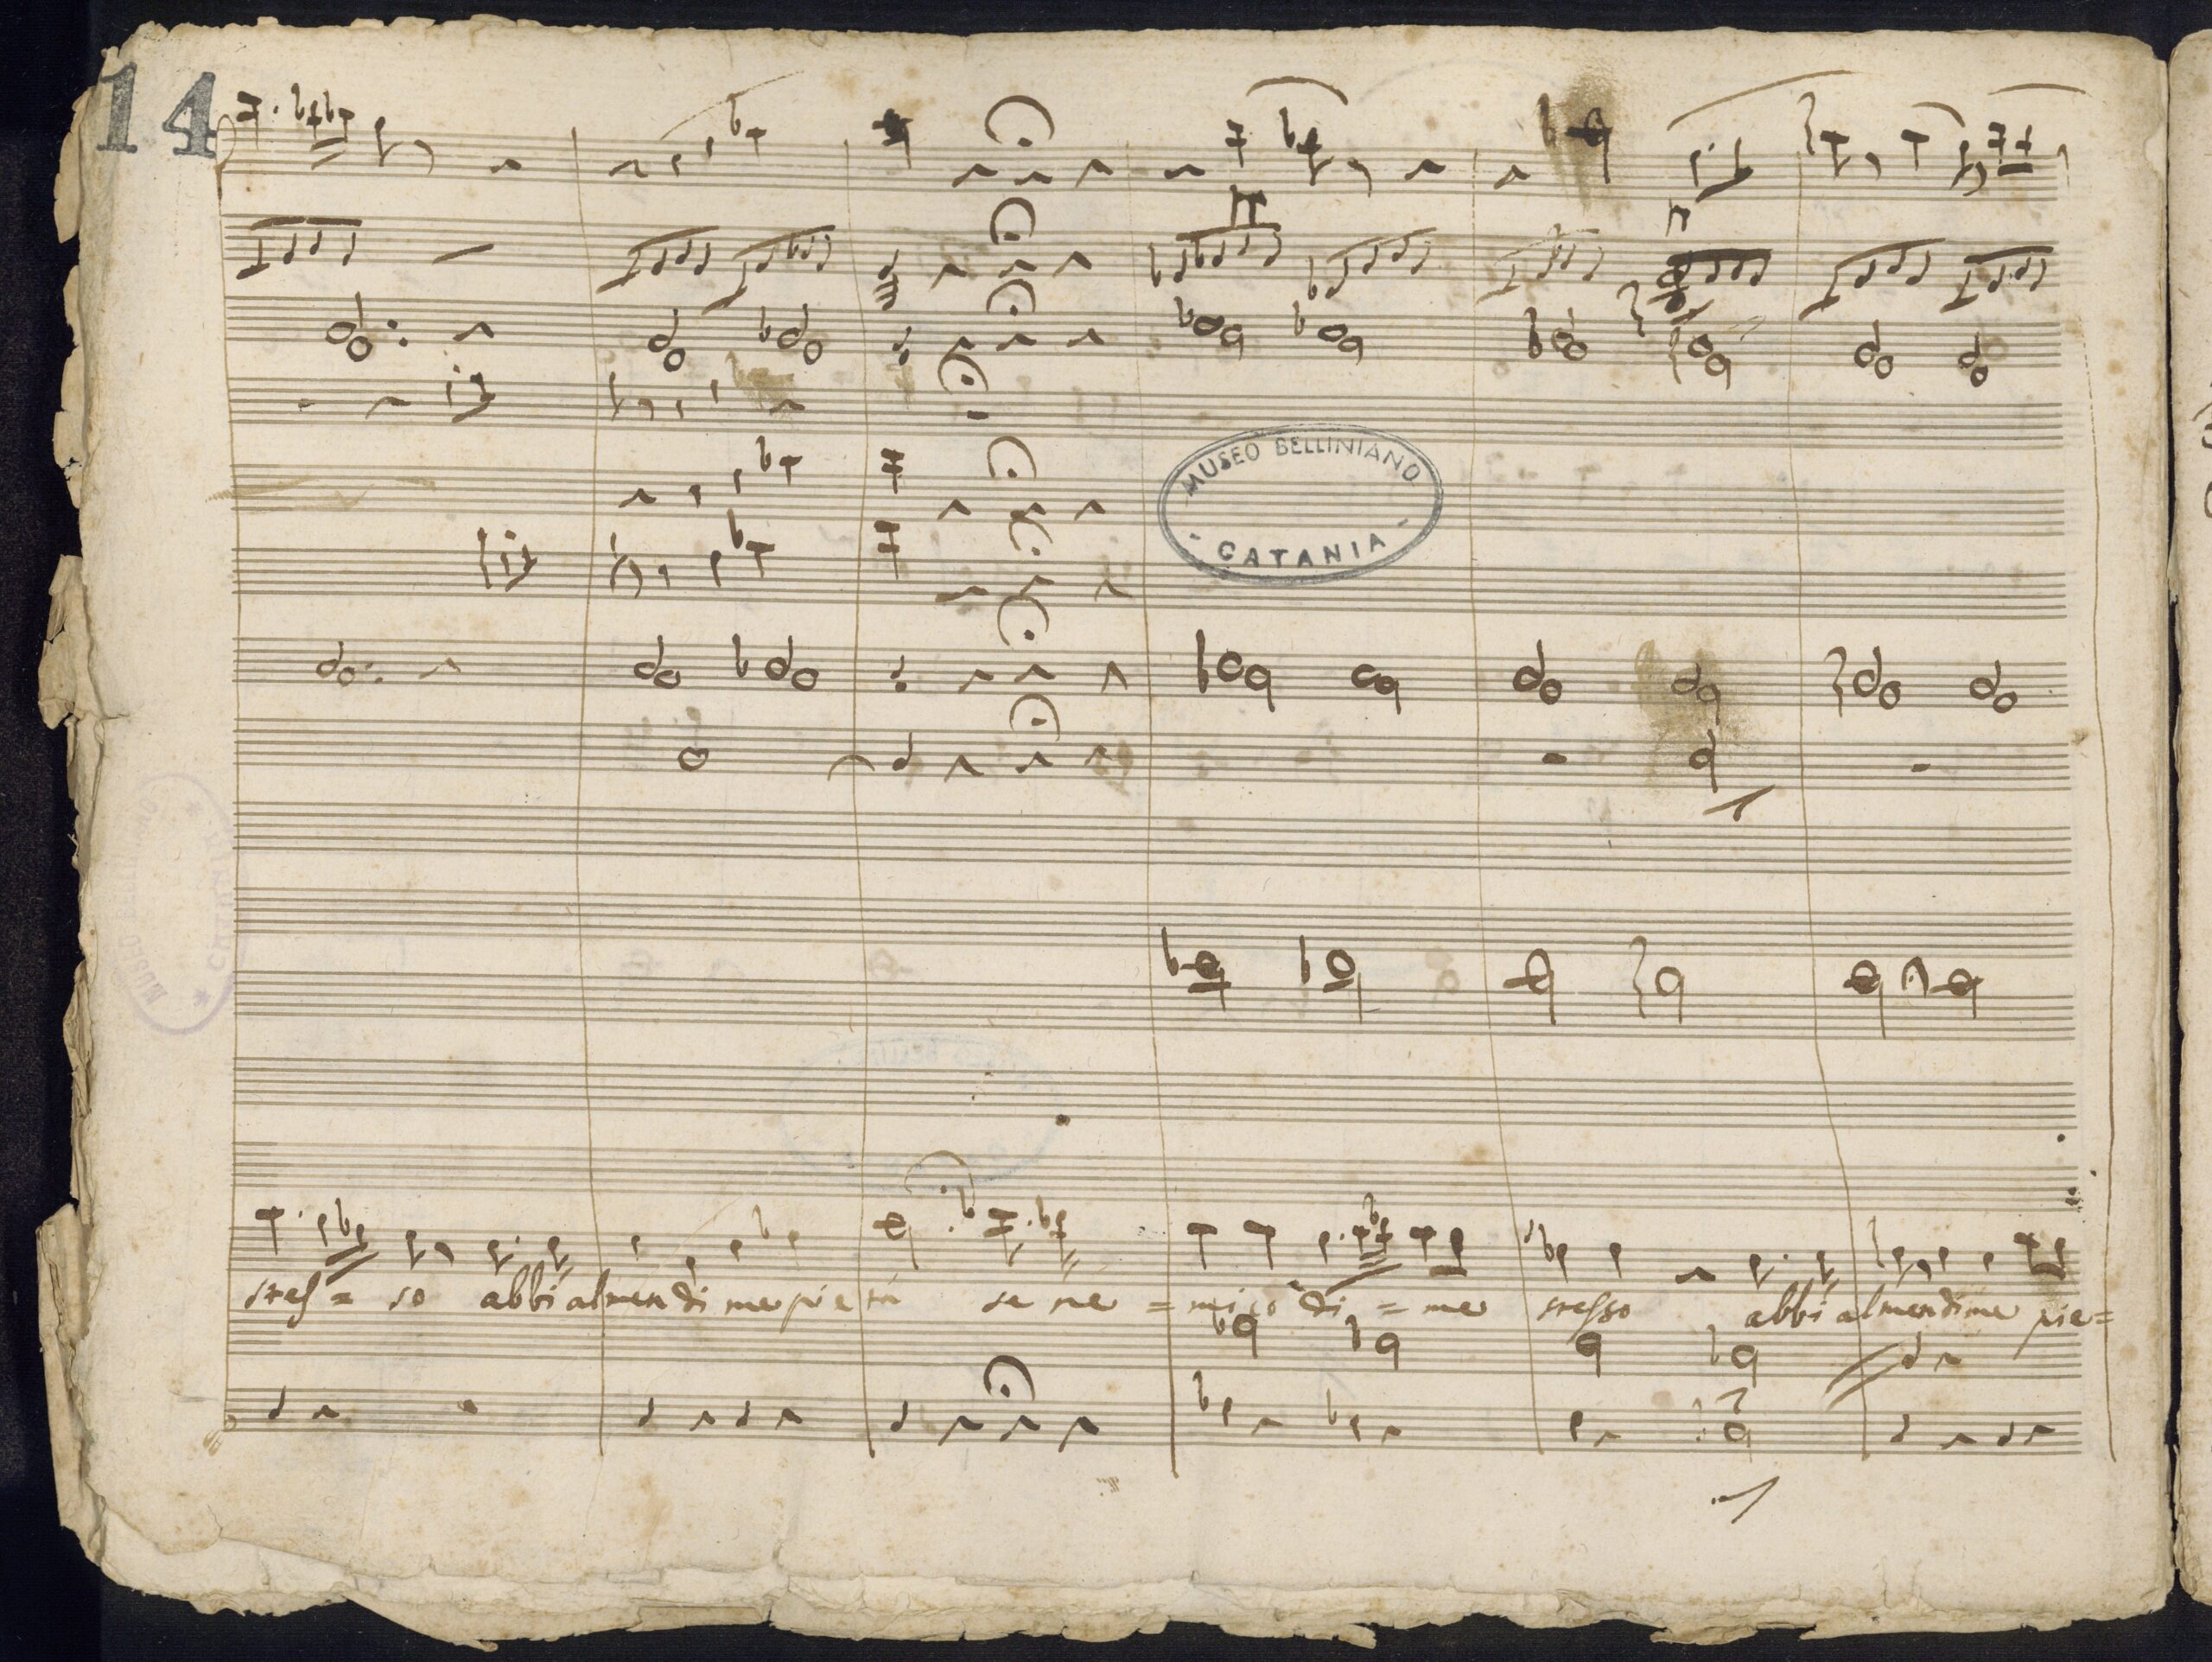 14
MUSEO BELLINIANO
CATANIA
stes = so abbi almen di me pie tà se ne = mico di = me stesso abbi almen di me pie =